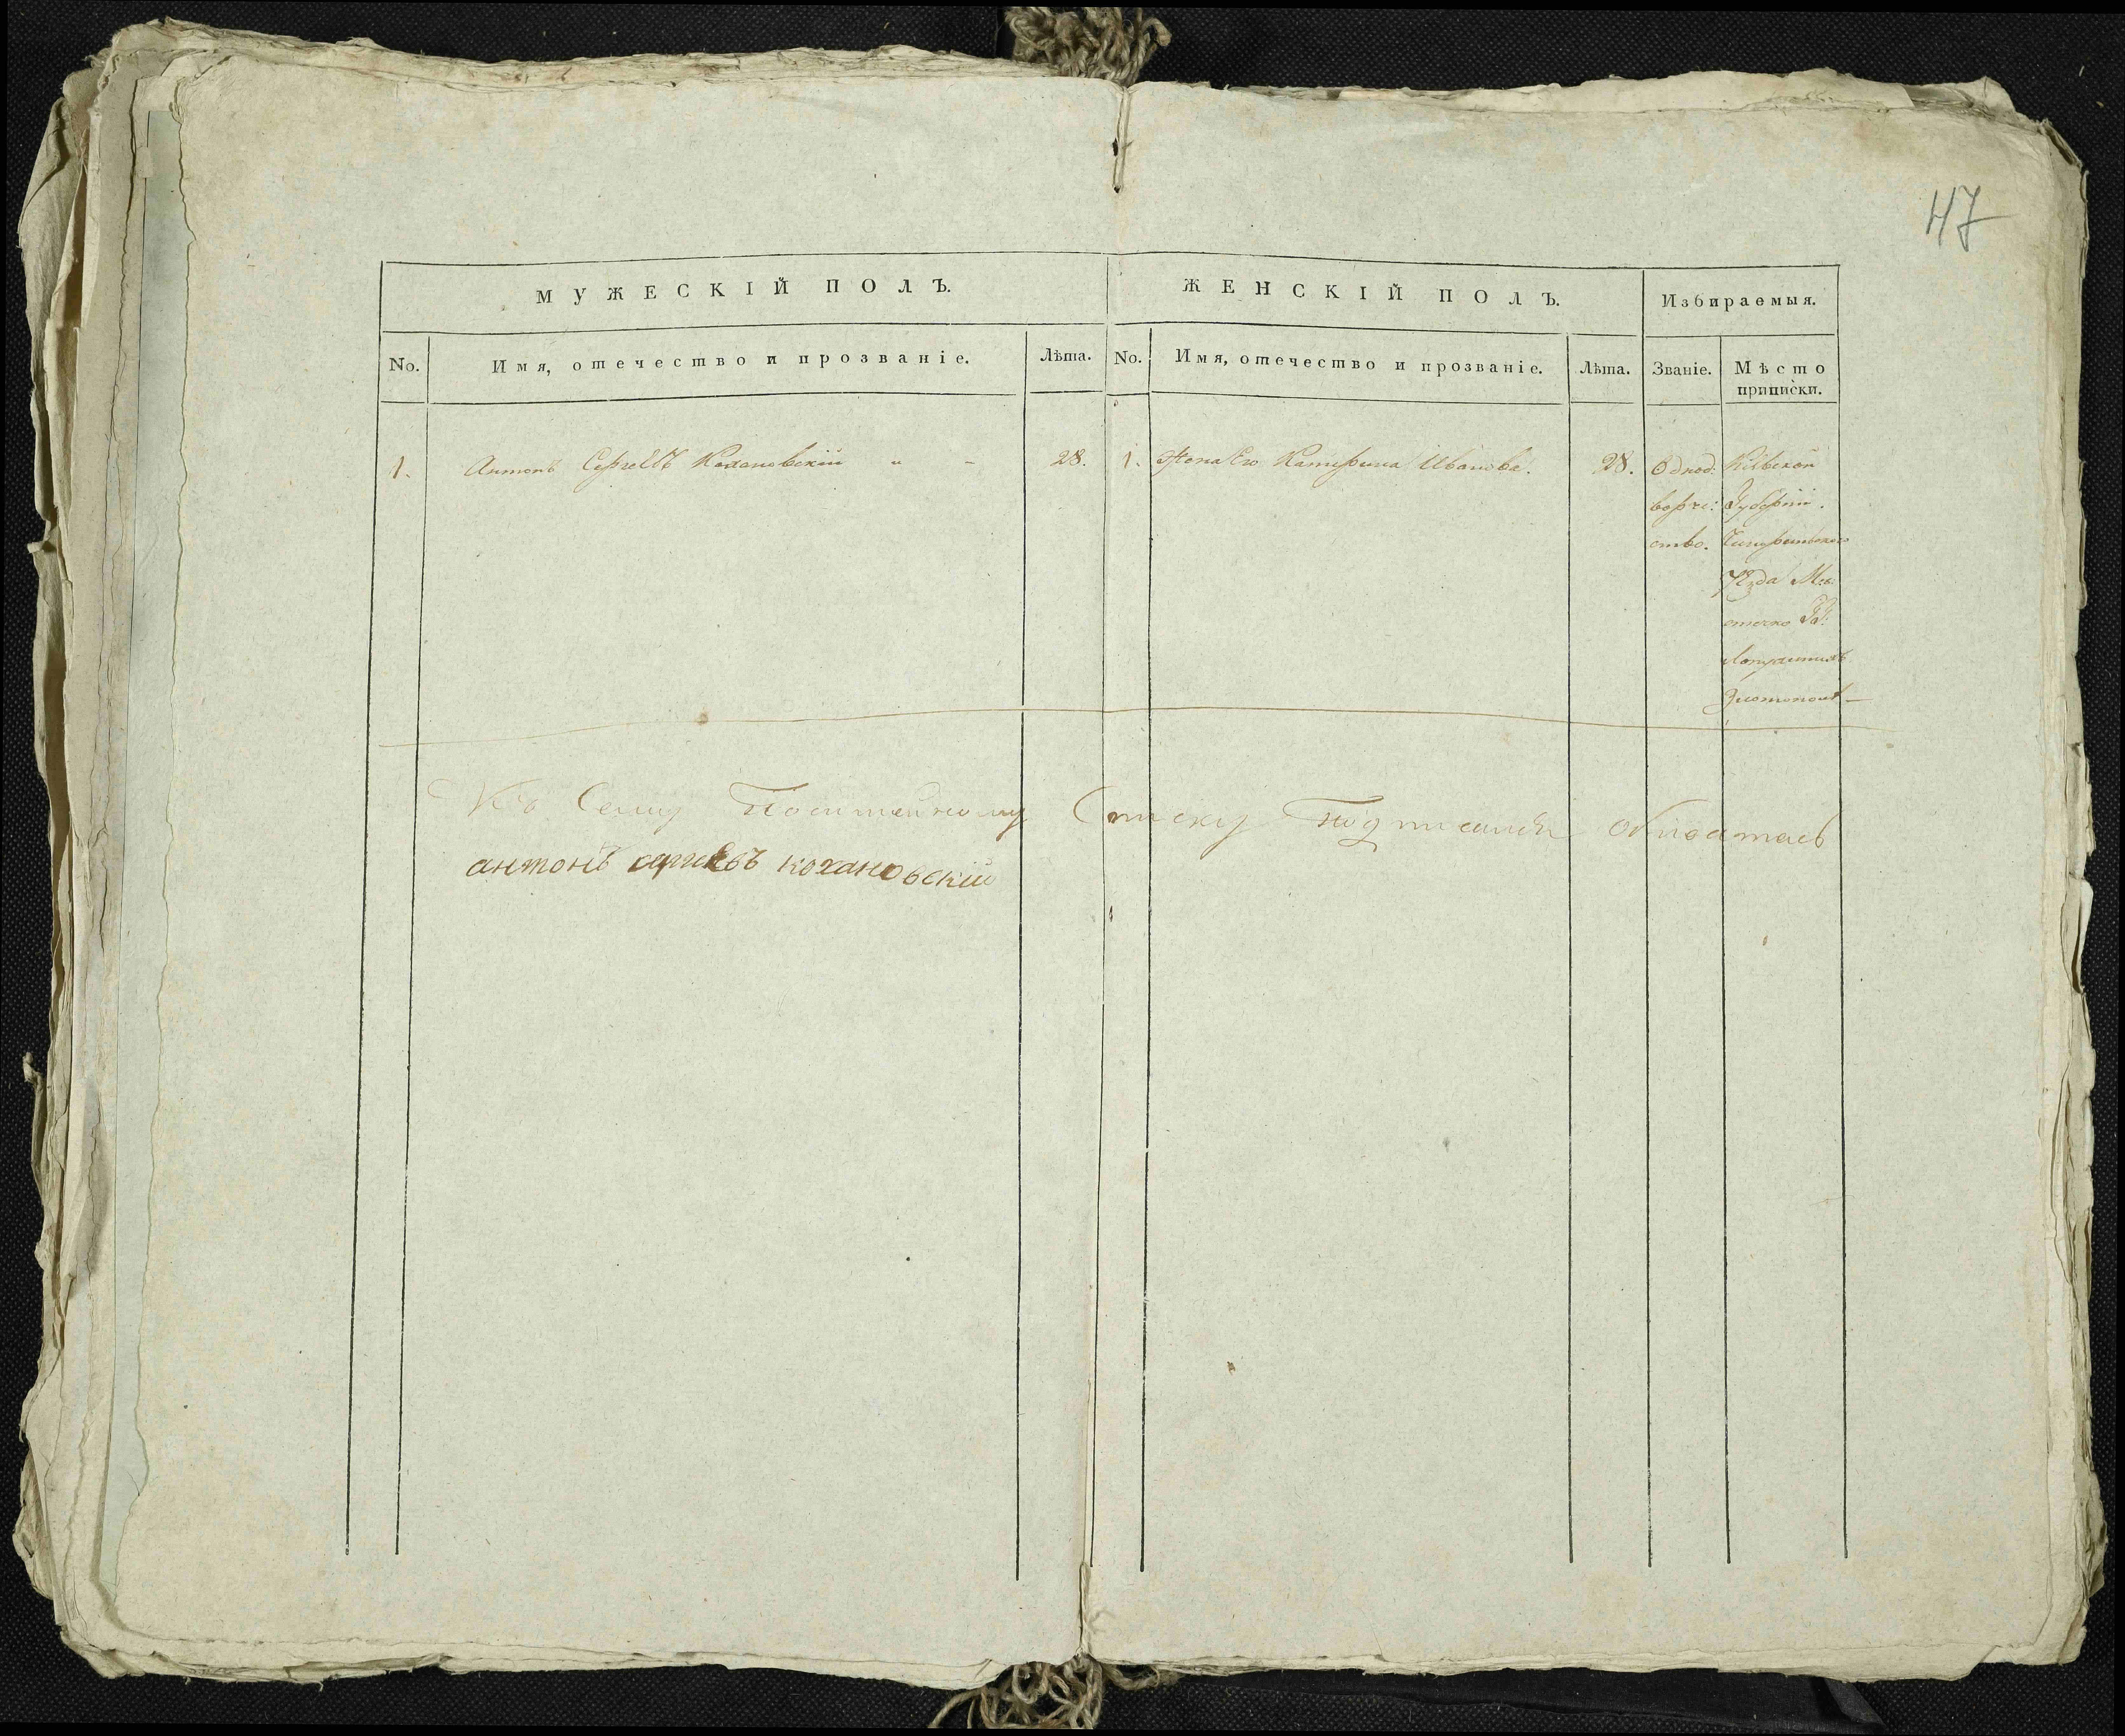 47
МУЖЕСКІЙ ПОЛЪ.
ЖЕНСКІЙ ПОЛЪ.
Избираемыя.
No.
Имя, отечество и прозваніе.
Лѣта.
No.
Имя, отечество и прозваніе.
Лѣта.
Званіе.
Мѣсто
приписки.
1.
Антонъ Сергѣевъ Кохановскій
28.
1.
Жена Его Катерина Иванова.
28.
Однод:
ворче:
ство.
Кіевской
Губерніи.
Чигиринского
Уѣзда Мѣ:
стечко
Златополь
Къ Сему Посемейному Списку Подписался
антонъ сергѣевъ кохановскій